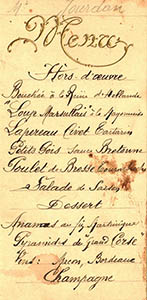 Mr Jourdan
Menu
Hors-d'œuvre
Bouchée à la Reine d'Hollande
"Loup Marseillais" à la Mayonnaise
Lapereau Civet Tartarin
Petits Pois Sauce Bretonne
Poulet de Bresse
Salade de Saison
Dessert
Ananas au Martinique
Pyramide du grand Corse
Vins: Bordeaux
Champagne